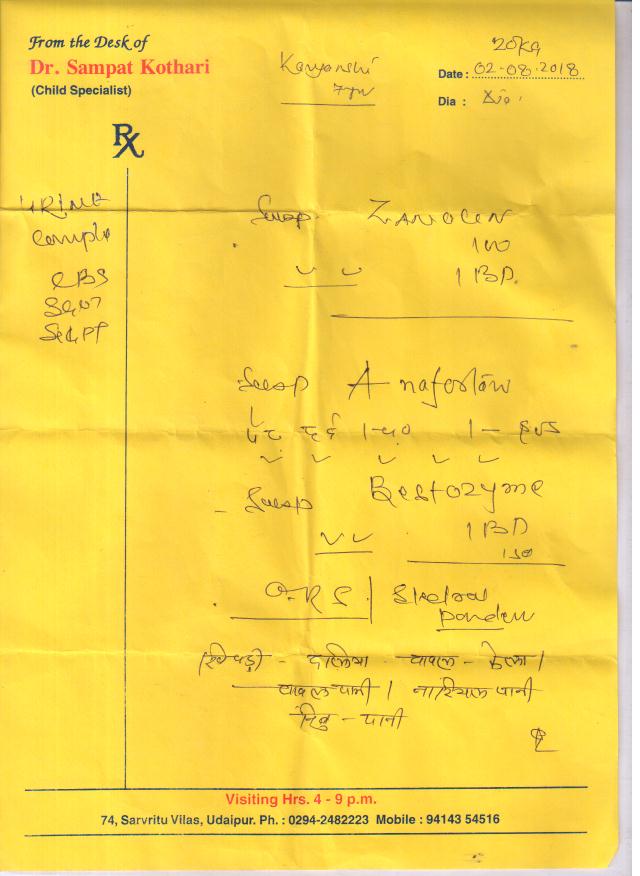 From the Desk of
Dr. Sampat Kothari
(Child Specialist)
20Kg
Date : 02-08-2018
Dia :
Rx
URINE
Complt
CBS
SGOT
SGPT
Syp ZANOCIN
100
1 BD.
Syp Anafortan
पेट दर्द
Syp Bestozyme
1 BD
O.R.S |
खिचड़ी - दलिया - चावल - केला |
चावल पानी | नारियल पानी
निंबु - पानी
Visiting Hrs. 4 - 9 p.m.
74, Sarvritu Vilas, Udaipur. Ph. : 0294-2482223 Mobile : 94143 54516